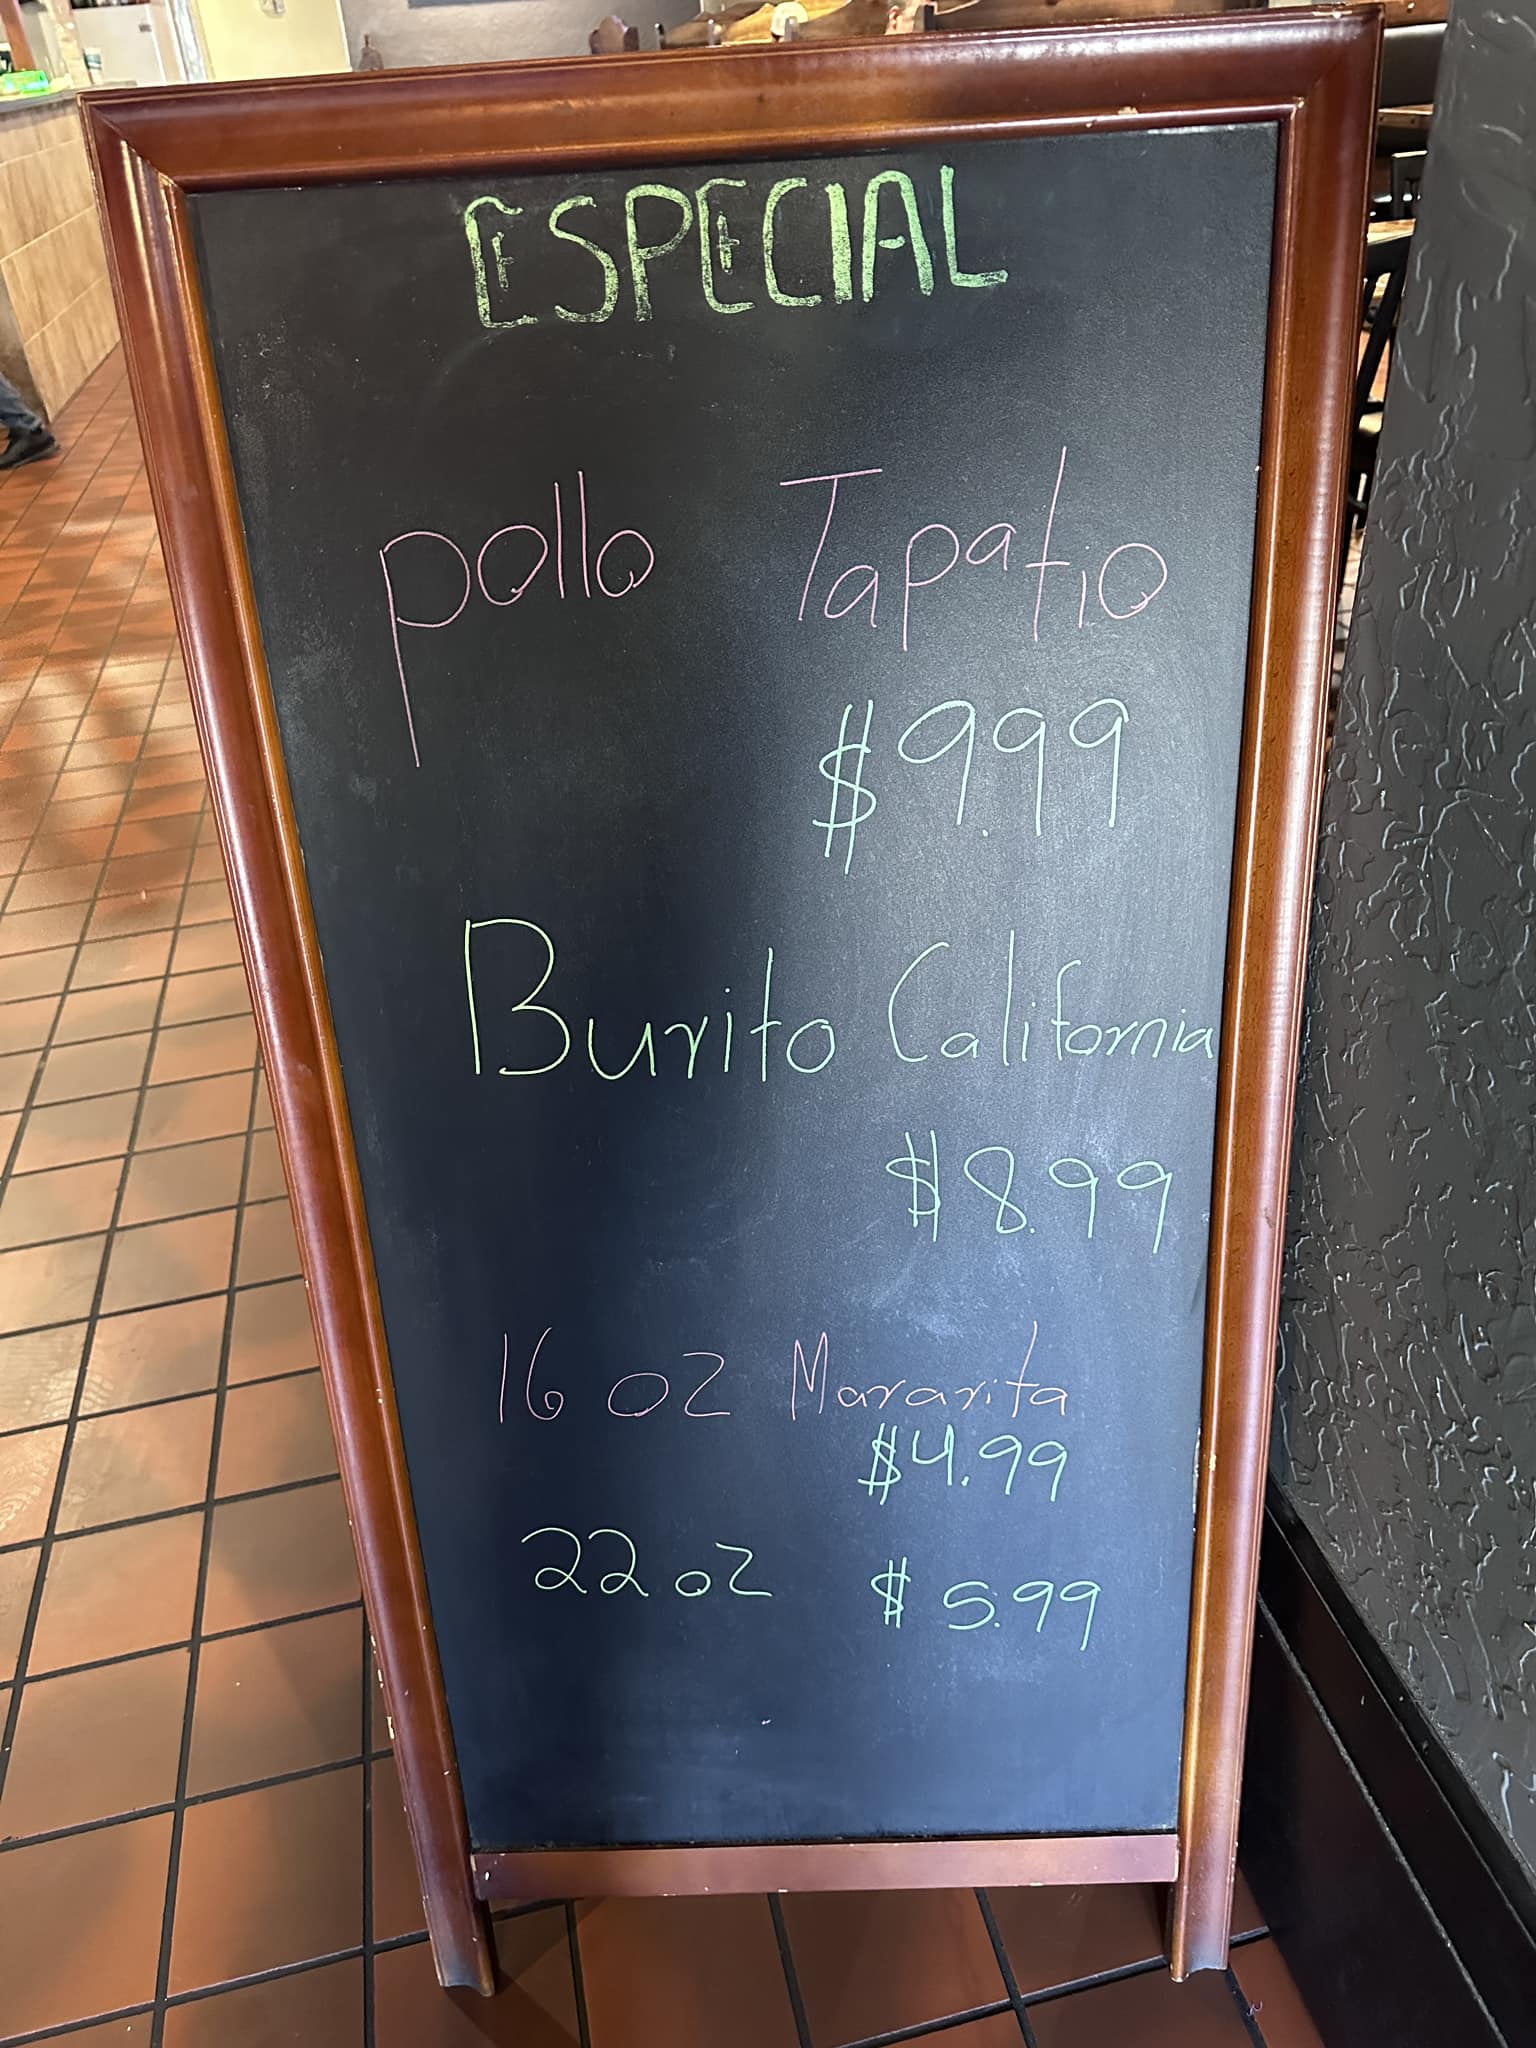 ESPECIAL
pollo Tapatio
$9.99
Burito California
$8.99
16 oz Mararita
$4.99
22 oz $5.99